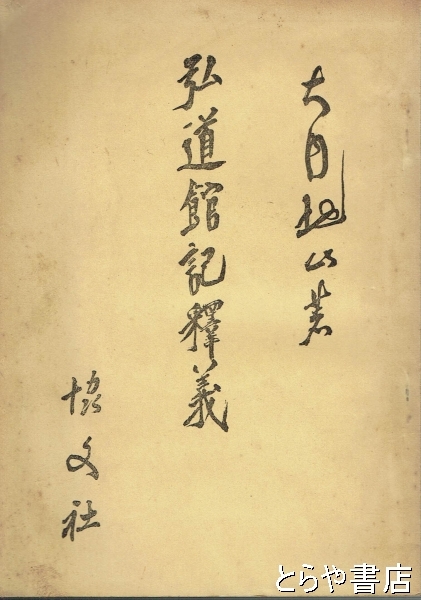 大内地山著
弘道館記釋義
協文社
とらや書店